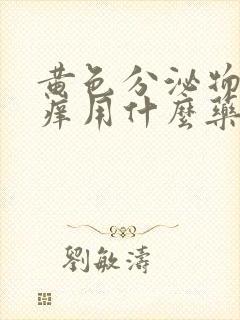 黄色分泌物
痒用什麼藥
劉敏濤